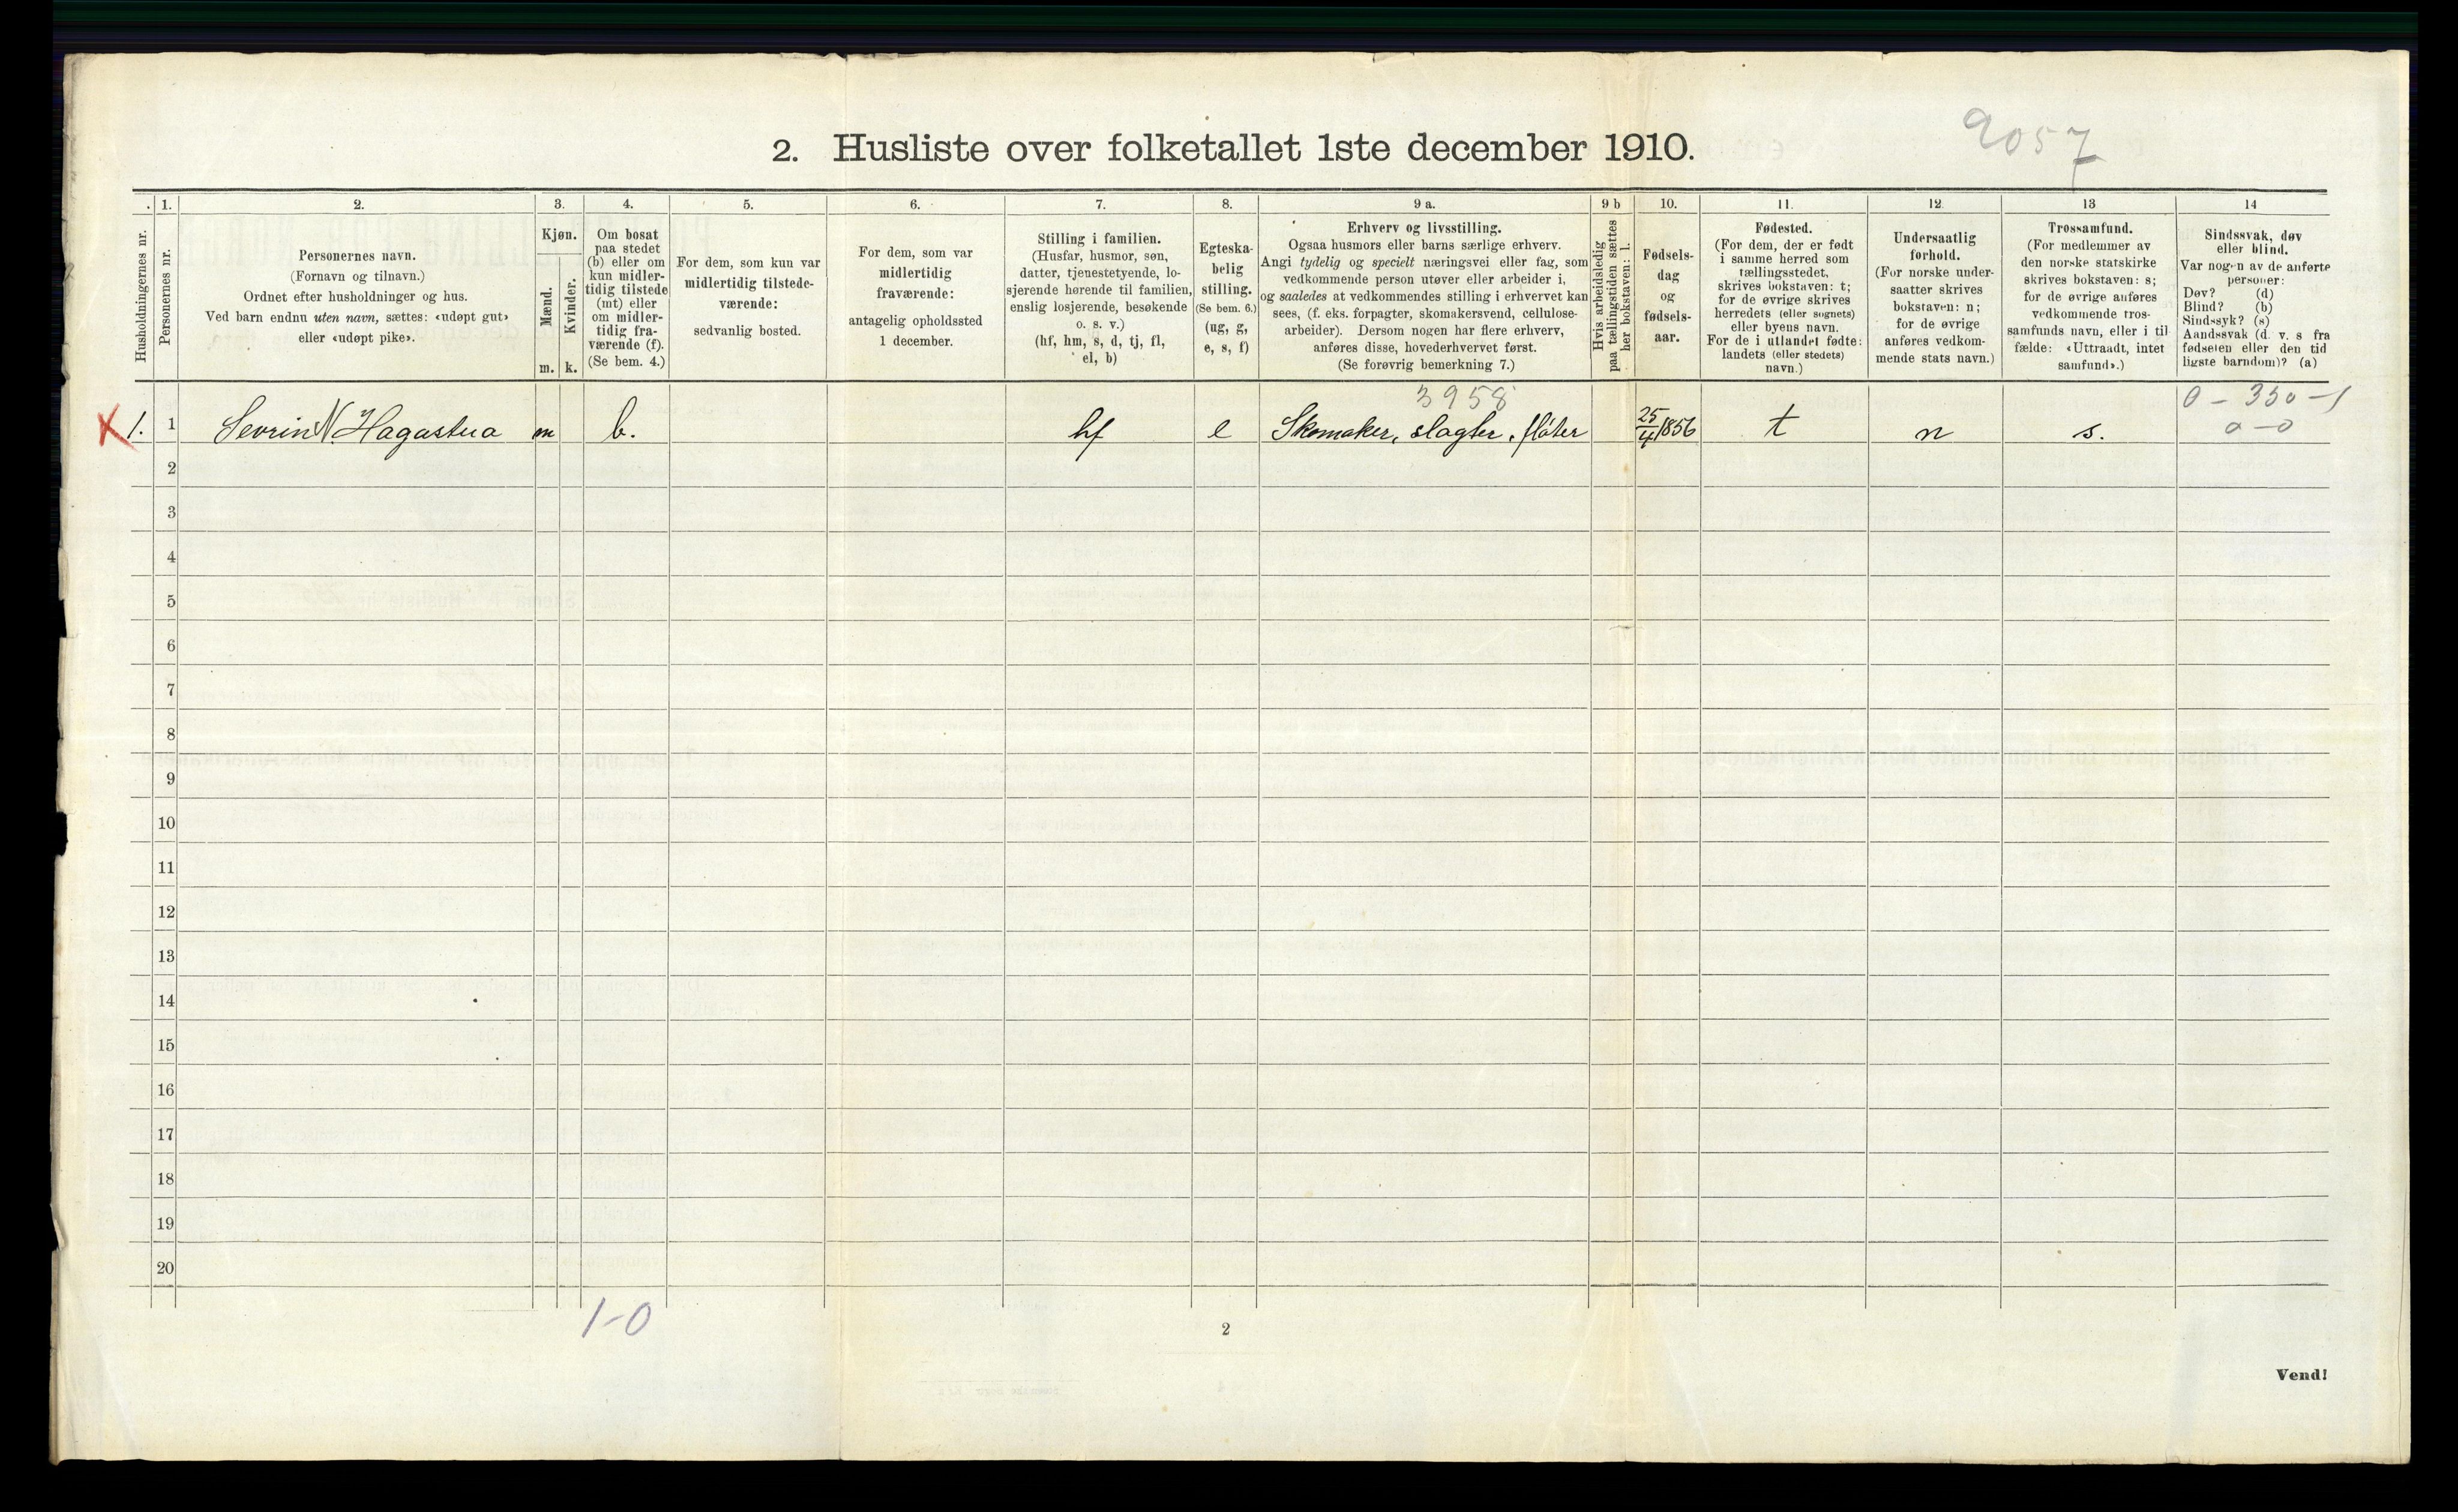 9057
2. Husliste over folketallet 1ste december 1910.
Husholdningernes nr.
1.
Personernes nr.
2.
Personernes navn.
(Fornavn og tilnavn.)
Ordnet efter husholdninger og hus.
Ved barn endnu uten navn, sættes: «udøpt gut»
eller «udøpt pike».
3.
Kjøn.
Mænd.
Kvinder.
m. k.
4.
Om bosat
paa stedet
(b) eller om
kun midler-
tidig tilstede
(mt) eller
om midler-
tidig fra-
værende (f).
(Se bem. 4.)
5.
For dem, som kun var
midlertidig tilstede-
værende:
sedvanlig bosted.
6.
For dem, som var
midlertidig
fraværende:
antagelig opholdssted
1 december.
7.
Stilling i familien.
(Husfar, husmor, søn,
datter, tjenestetyende, lo-
sjerende hørende til familien,
enslig losjerende, besøkende
o. s. v.)
(hf, hm, s, d, tj, fl,
el, b)
8.
Egteska-
belig
stilling.
(Se bem. 6.)
(ug, g,
e, s, f)
9 a.
Erhverv og livsstilling.
Ogsaa husmors eller barns særlige erhverv.
Angi tydelig og specielt næringsvei eller fag, som
vedkommende person utøver eller arbeider i,
og saaledes at vedkommendes stilling i erhvervet kan
sees, (f. eks. forpagter, skomakersvend, cellulose-
arbeider). Dersom nogen har flere erhverv,
anføres disse, hovederhvervet først.
(Se forøvrig bemerkning 7.)
9 b
Hvis arbeidsledig
paa tællingstiden sættes
her bokstaven: l.
10.
Fødsels-
dag
og
fødsels-
aar.
11.
Fødested.
(For dem, der er født
i samme herred som
tællingsstedet,
skrives bokstaven: t;
for de øvrige skrives
herredets (eller sognets)
eller byens navn.
For de i utlandet fødte:
landets (eller stedets)
navn.)
12.
Undersaatlig
forhold.
(For norske under-
saatter skrives
bokstaven: n;
for de øvrige
anføres vedkom-
mende stats navn.)
13
Trossamfund.
(For medlemmer av
den norske statskirke
skrives bokstaven: s;
for de øvrige anføres
vedkommende tros-
samfunds navn, eller i til-
fælde: «Uttraadt, intet
samfund».)
14
Sindssvak, døv
eller blind.
Var nogen av de anførte
personer:
Døv? (d)
Blind? (b)
Sindssyk? (s)
Aandssvak (d. v. s fra
fødselen eller den tid
ligste barndom)? (a)
3958
0 - 350 - 1
X 1. 1 Sevrin N. Hagastua m b. hf e Skomaker, slagter, fløter 25/4 1856 t n s. 0 - 0
2
3
4
5
6
7
8
9
10
11
12
13
14
15
16
17
18
19
20
1-0
2
Vend!